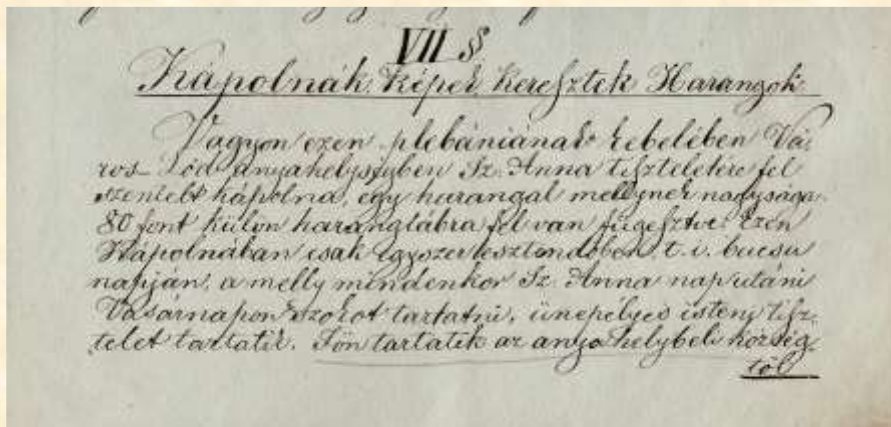 VII §
Kápolnák, Képek, Keresztek Harangok
Vagyon ezen plebániának kebelében Vá-
ros Lőd anyahelységben Sz. Anna tiszteletére fel
szentelt kápolna, egy harangal mellynek nagysága
80 font külön haranglábra fel van függesztve. Ezen
Kápolnában csak egyszer esztendőben, t. i. bucsu
napján, a melly mindenkor Sz. Anna nap utáni
Vasárnapon szokot tartatni, ünepélyes isteni tisz-
telet tartatik. Fön tartatik az anya helybeli község-
től